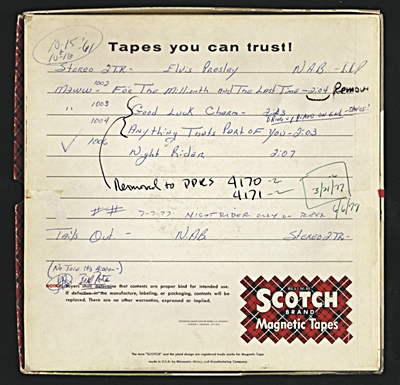 10-15-61
10-16
Tapes you can trust!
Stereo 2TR- Elvis Presley N.A.B.
1002 For The Millionth And The Last Time - 2:04 Removed
" 1003 Good Luck Charm - 2:23
1004 Anything Thats Part of You - 2:03
1006 Night Rider 2:07
Removed to DPRS 4170-2
4171-2
3/21/77
## 7-7-77 NIGHTRIDER ONLY in REEL
Tails Out - N.A.B. Stereo 2TR-
NOTICE: Buyers shall determine that contents are proper kind for intended use.
If defective in the manufacture, labeling, or packaging, contents will be
replaced. There are no other warranties, expressed or implied.
SCOTCH
BRAND
Magnetic Tapes
The term "SCOTCH" and the plaid design are registered trade marks for Magnetic Tape
made in U.S.A. by Minnesota Mining and Manufacturing Company